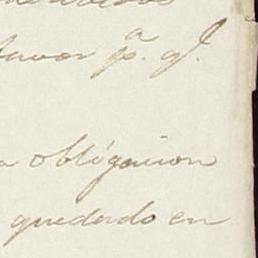 favor pª. qͤ.
obligacion
quedado en